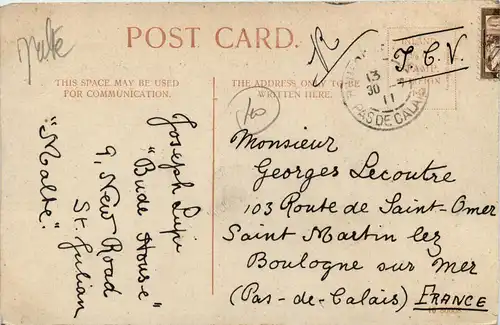 Malte
POST CARD.
THIS SPACE MAY BE USED
FOR COMMUNICATION.
THE ADDRESS ONLY TO BE
WRITTEN HERE.
T.C.V.
INLAND
13
30
11
PAS DE CALAIS
Joseph Lupi
"Bude House"
9, New Road
St. Julian
"Malte".
Monsieur
Georges Lecoutre
103 Route de Saint-Omer
Saint Martin lez
Boulogne sur Mer
(Pas-de-Calais) FRANCE